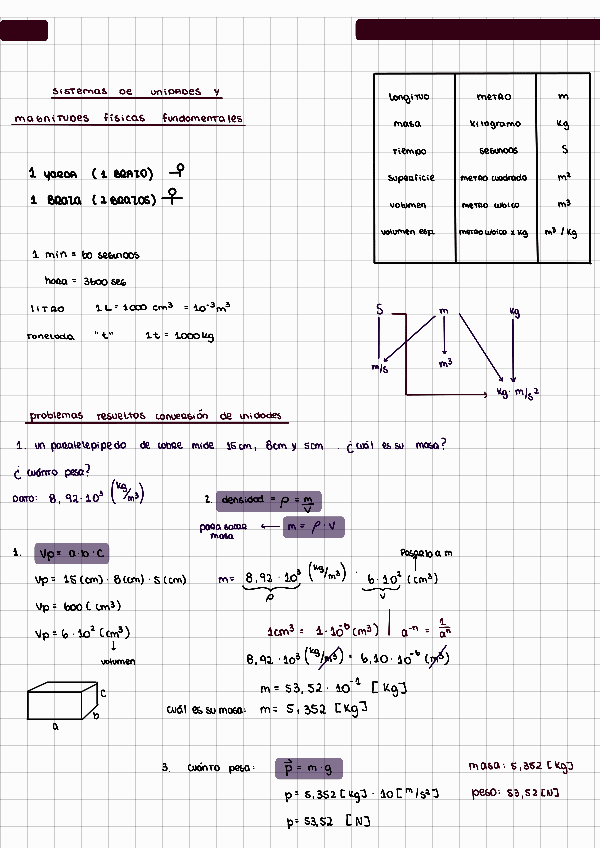 sistemas de unidades y
magnitudes físicas fundamentales
longitud metro m
masa kilogramo kg
tiempo segundos s
superficie metro cuadrado m²
volumen metro cubico m³
volumen esp. metro cubico x kg m³ / kg
1 yarda (1 brazo)
1 braza (2 brazos)
1 min = 60 segundos
hora = 3600 seg
litro 1 L = 1000 cm³ = 10⁻³ m³
tonelada "t" 1 t = 1000 kg
s m kg
m/s m³
kg · m/s²
problemas resueltos conversión de unidades
1. un paralelepipedo de cobre mide 15cm, 8cm y 5cm . ¿cuál es su masa?
¿ cuánto pesa?
Dato: 8,92·10³ (kg/m³)
2. densidad = ρ = m/v
para sacar masa ← m = ρ · v
1. Vp = a·b·c
Pasarlo a m
Vp = 15(cm) · 8(cm) · 5(cm)
m = 8,92 · 10³ (kg/m³) · 6·10² (cm³)
ρ v
Vp = 600 (cm³)
Vp = 6 · 10² (cm³)
↓
volumen
1cm³ = 1·10⁻⁶ (m³) | a⁻ⁿ = 1/aⁿ
8,92 · 10³ (kg/m³) · 6,10 · 10⁻⁶ (m³)
m = 53,52 · 10⁻¹ [kg]
cuál es su masa: m = 5,352 [kg]
a b c
3. cuánto pesa: p = m · g
p = 5,352 [kg] · 10 [m/s²]
p = 53,52 [N]
masa: 5,352 [kg]
peso: 53,52 [N]